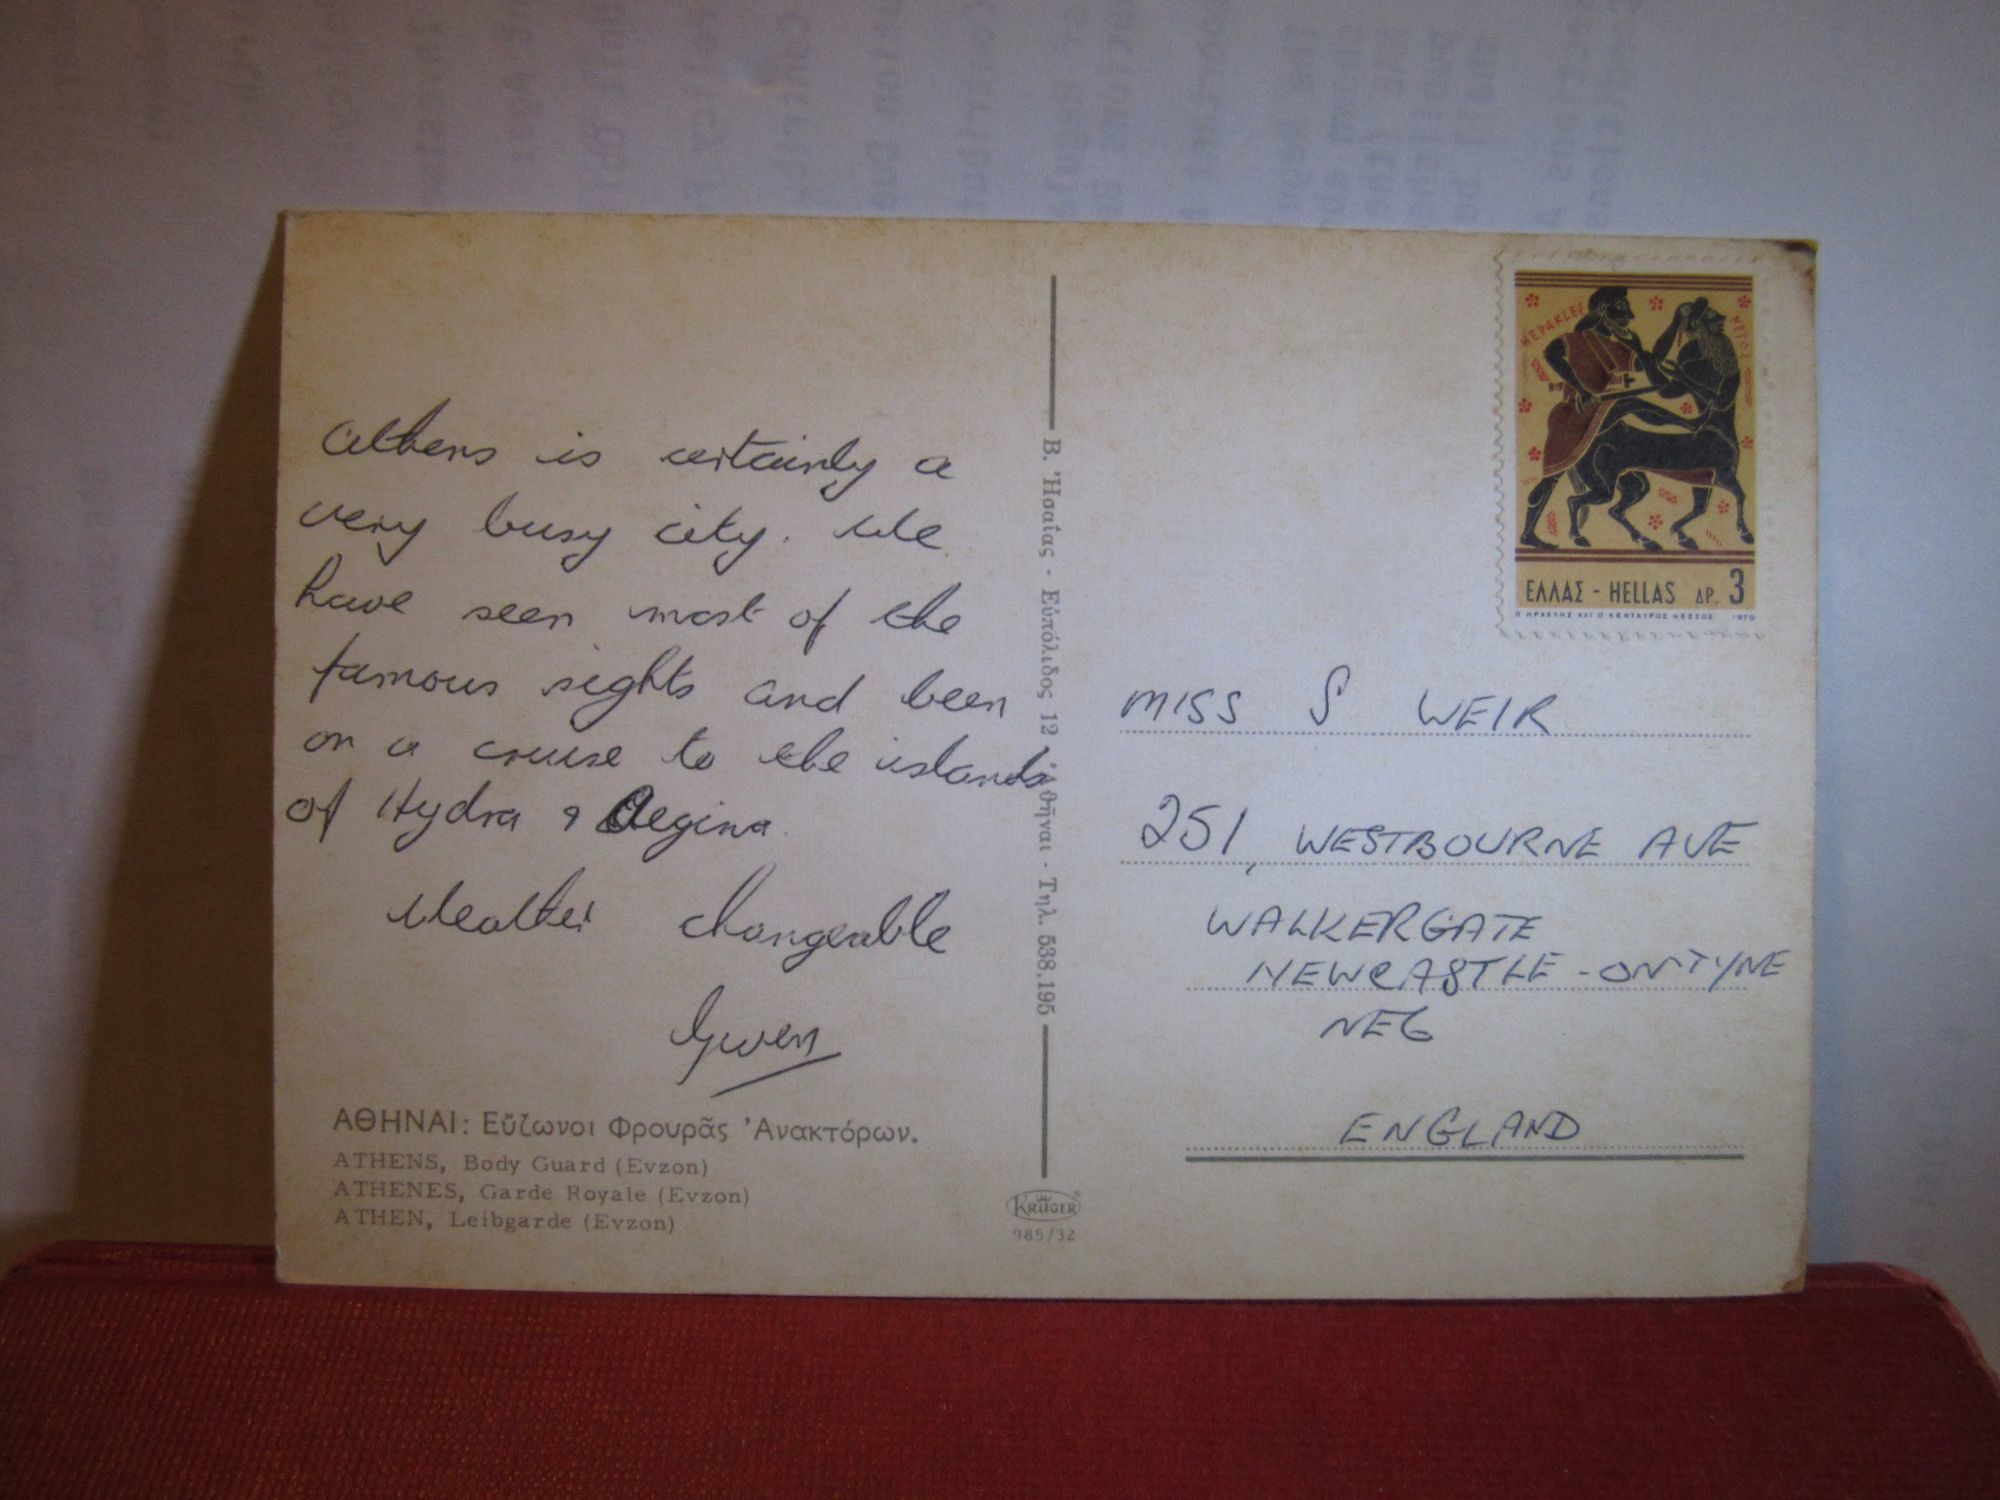 Athens is certainly a
very busy city. We
have seen most of the
famous sights and been
on a cruise to the islands
of Hydra & Aegina.
Weather changeable
Gwen
ΑΘΗΝΑΙ: Εὔζωνοι Φρουρᾶς Ἀνακτόρων.
ATHENS, Body Guard (Evzon)
ATHENES, Garde Royale (Evzon)
ATHEN, Leibgarde (Evzon)
Β. Ἠσαΐας - Εὐπόλιδος 12 - Ἀθῆναι - Τηλ. 538.195
KRÜGER
985/32
ΗΕΡΑΚLΕΣ
ΝΕΤΟΣ
ΕΛΛΑΣ - HELLAS ΔΡ. 3
Ο ΗΡΑΚΛΗΣ ΚΑΙ Ο ΚΕΝΤΑΥΡΟΣ ΝΕΣΣΟΣ 1970
MISS S WEIR
251, WESTBOURNE AVE
WALKERGATE
NEWCASTLE-ON TYNE
NE6
ENGLAND